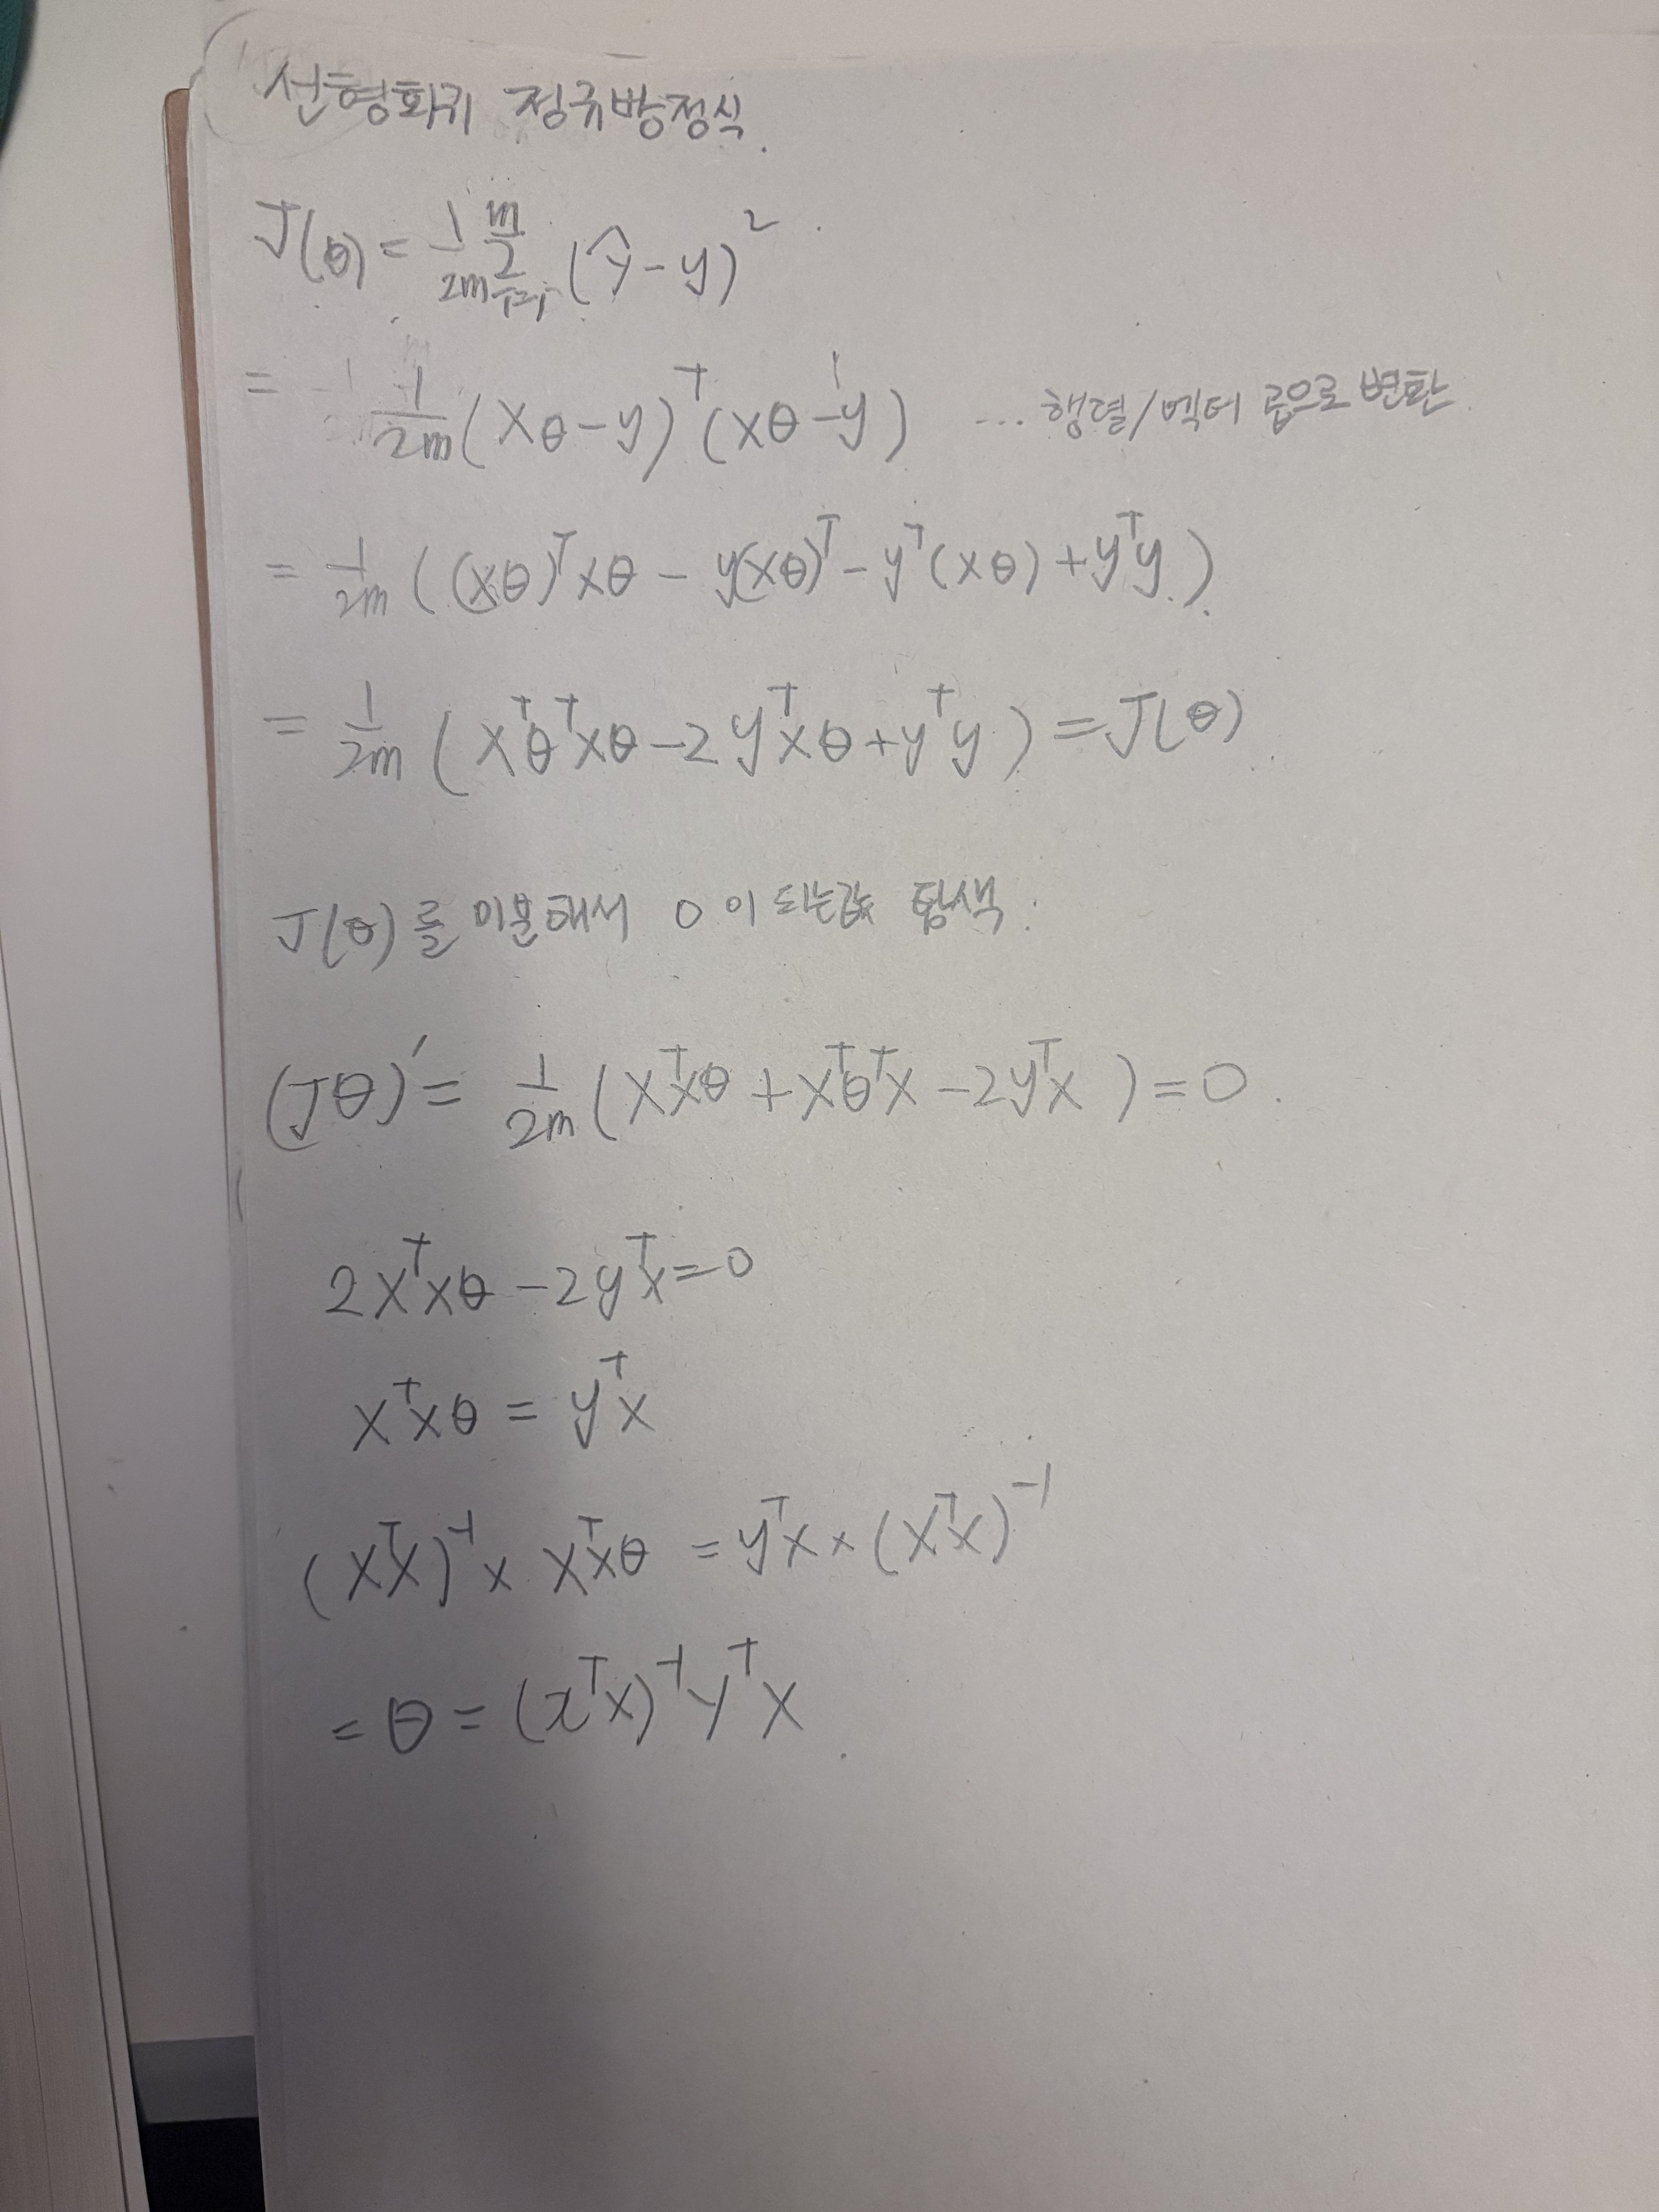 선형회귀 정규방정식.
J(θ) = 1/2m Σ_{i=1}^{m} (ŷ-y)²
= 1/2m (Xθ-y)ᵀ(Xθ-y) ... 행렬/벡터 곱으로 변환
= 1/2m ((Xθ)ᵀXθ - y(Xθ)ᵀ - yᵀ(Xθ) + yᵀy)
= 1/2m (XᵀθᵀXθ - 2yᵀXθ + yᵀy) = J(θ)
J(θ)를 미분해서 0이 되는값 탐색:
(Jθ)′ = 1/2m (XᵀXθ + XᵀθᵀX - 2yᵀX) = 0
2XᵀXθ - 2yᵀX = 0
XᵀXθ = yᵀX
(XᵀX)⁻¹ × XᵀXθ = yᵀX × (XᵀX)⁻¹
= θ = (xᵀX)⁻¹yᵀX